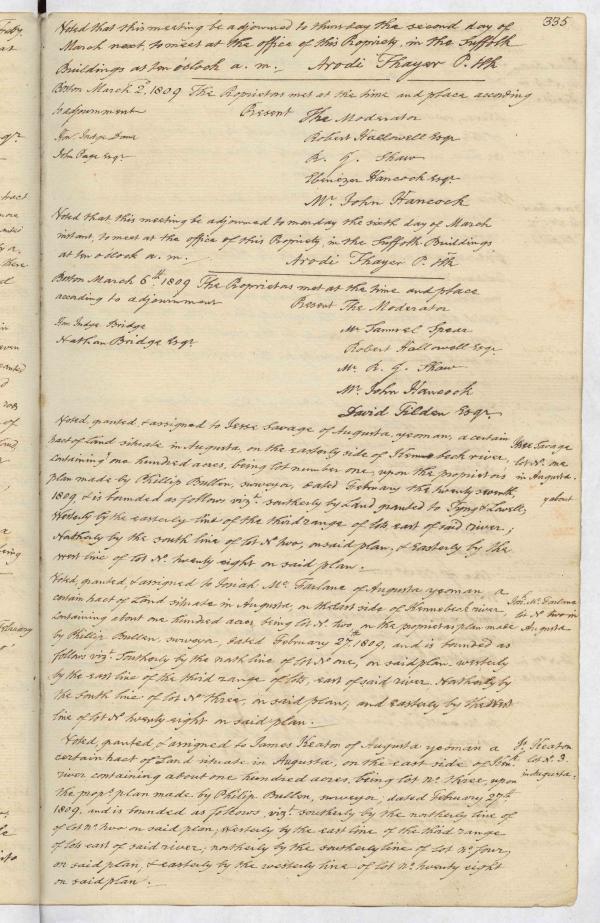 335
Voted that this meeting be adjourned to thursday the second day of
March next, to meet at the office of this Propriety, in the Suffolk
Buildings at ten o'clock a. m. Arodi Thayer P. Clk
Boston March 2d. 1809 The Proprietors met at the time and place according
to adjournment Present The Moderator
Hon. Judge Dawes Robert Hallowell Esqr
John Page Esqr. R. G. Shaw
Ebenezer Hancock Esqr.
Mr. John Hancock
Voted that this meeting be adjourned to monday the sixth day of March
instant, to meet at the office of this Propriety, in the Suffolk Buildings
at ten o clock a. m. Arodi Thayer P. Clk
Boston March 6th 1809 The Proprietors met at the time and place
according to adjournment Present The Moderator
Hon. Judge Bridge Mr Samuel Spear
Nathan Bridge Esqr. Robert Hallowell Esqr.
Mr. R. G. Shaw
Mr. John Hancock
David Tilden Esqr.
Voted, granted & assigned to Jesse Savage of Augusta, yeoman, a certain
tract of Land situate in Augusta, on the easterly side of Kennebeck river,
containing one hundred acres, being lot number one, upon the proprietors
plan made by Phillip Bullen, surveyor, dated February the twenty seventh,
1809, & is bounded as follows vizt. southerly by Land granted to Tyng & Lowell,
Westerly by the easterly line of the third range of lots east of said river;
Northerly by the south line of lot No two, on said plan, & Easterly by the
west line of lot No. twenty eight on said plan.
Jesse Savage
lot No. one
in Augusta.
about
Voted, granted & assigned to Josiah Mc. Farlane of Augusta yeoman a
certain tract of Land situate in Augusta, on the East side of Kennebeck river
containing about one hundred acres, being lot No. two, on the proprietors plan made
by Philip Bullen, surveyor, dated February 27th. 1809, and is bounded as
follows vizt. Southerly by the north line of lot No one, on said plan, westerly
by the east line of the third range of lots, east of said river Northerly by
the south line of lot No three, on said plan, and easterly by the West
line of lot No twenty eight on said plan.
Josh. Mc. Farlane
lot No two in
Augusta
Voted, granted & assigned to James Keaton of Augusta yeoman a
certain tract of Land situate in Augusta, on the east side of
river containing about one hundred acres, being lot No. three, upon
the propr. plan made by Philip Bullen, surveyor, dated February 27th.
1809, and is bounded as follows, vizt. southerly by the northerly line of
of lot No. two on said plan; Westerly by the east line of the third range
of lots east of said river; northerly by the southerly line of lot No. four,
on said plan, & easterly by the westerly line of lot No. twenty eight
on said plan.
Js. Keaton
lot No. 3.
in Augusta.